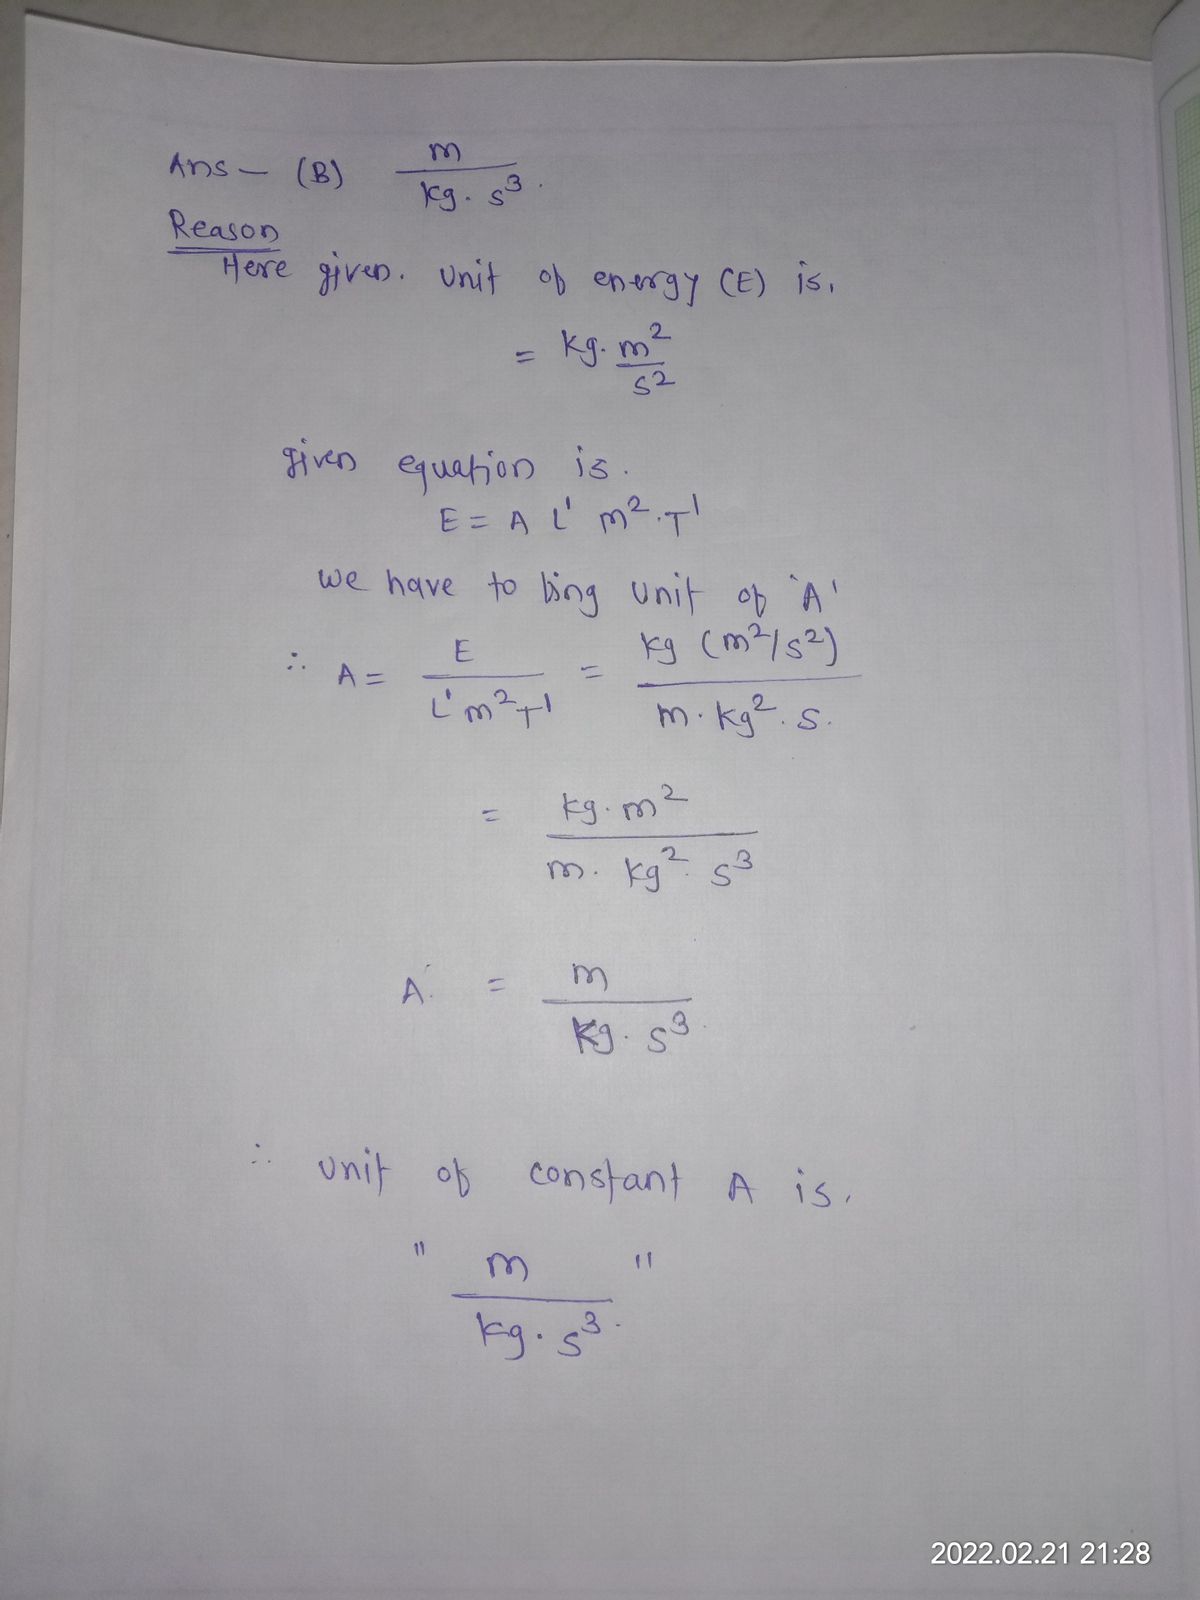 Ans - (B) m / kg. s³.
Reason
Here given. unit of energy (E) is.
= kg. m² / s²
given equation is.
E = A L¹ m². T¹
we have to bing unit of 'A'
∴ A = E / L¹ m² T¹ = kg (m²/s²) / m. kg². s.
= kg. m² / m. kg². s³
A. = m / kg. s³.
∴ unit of constant A is.
" m / kg. s³. "
2022.02.21 21:28